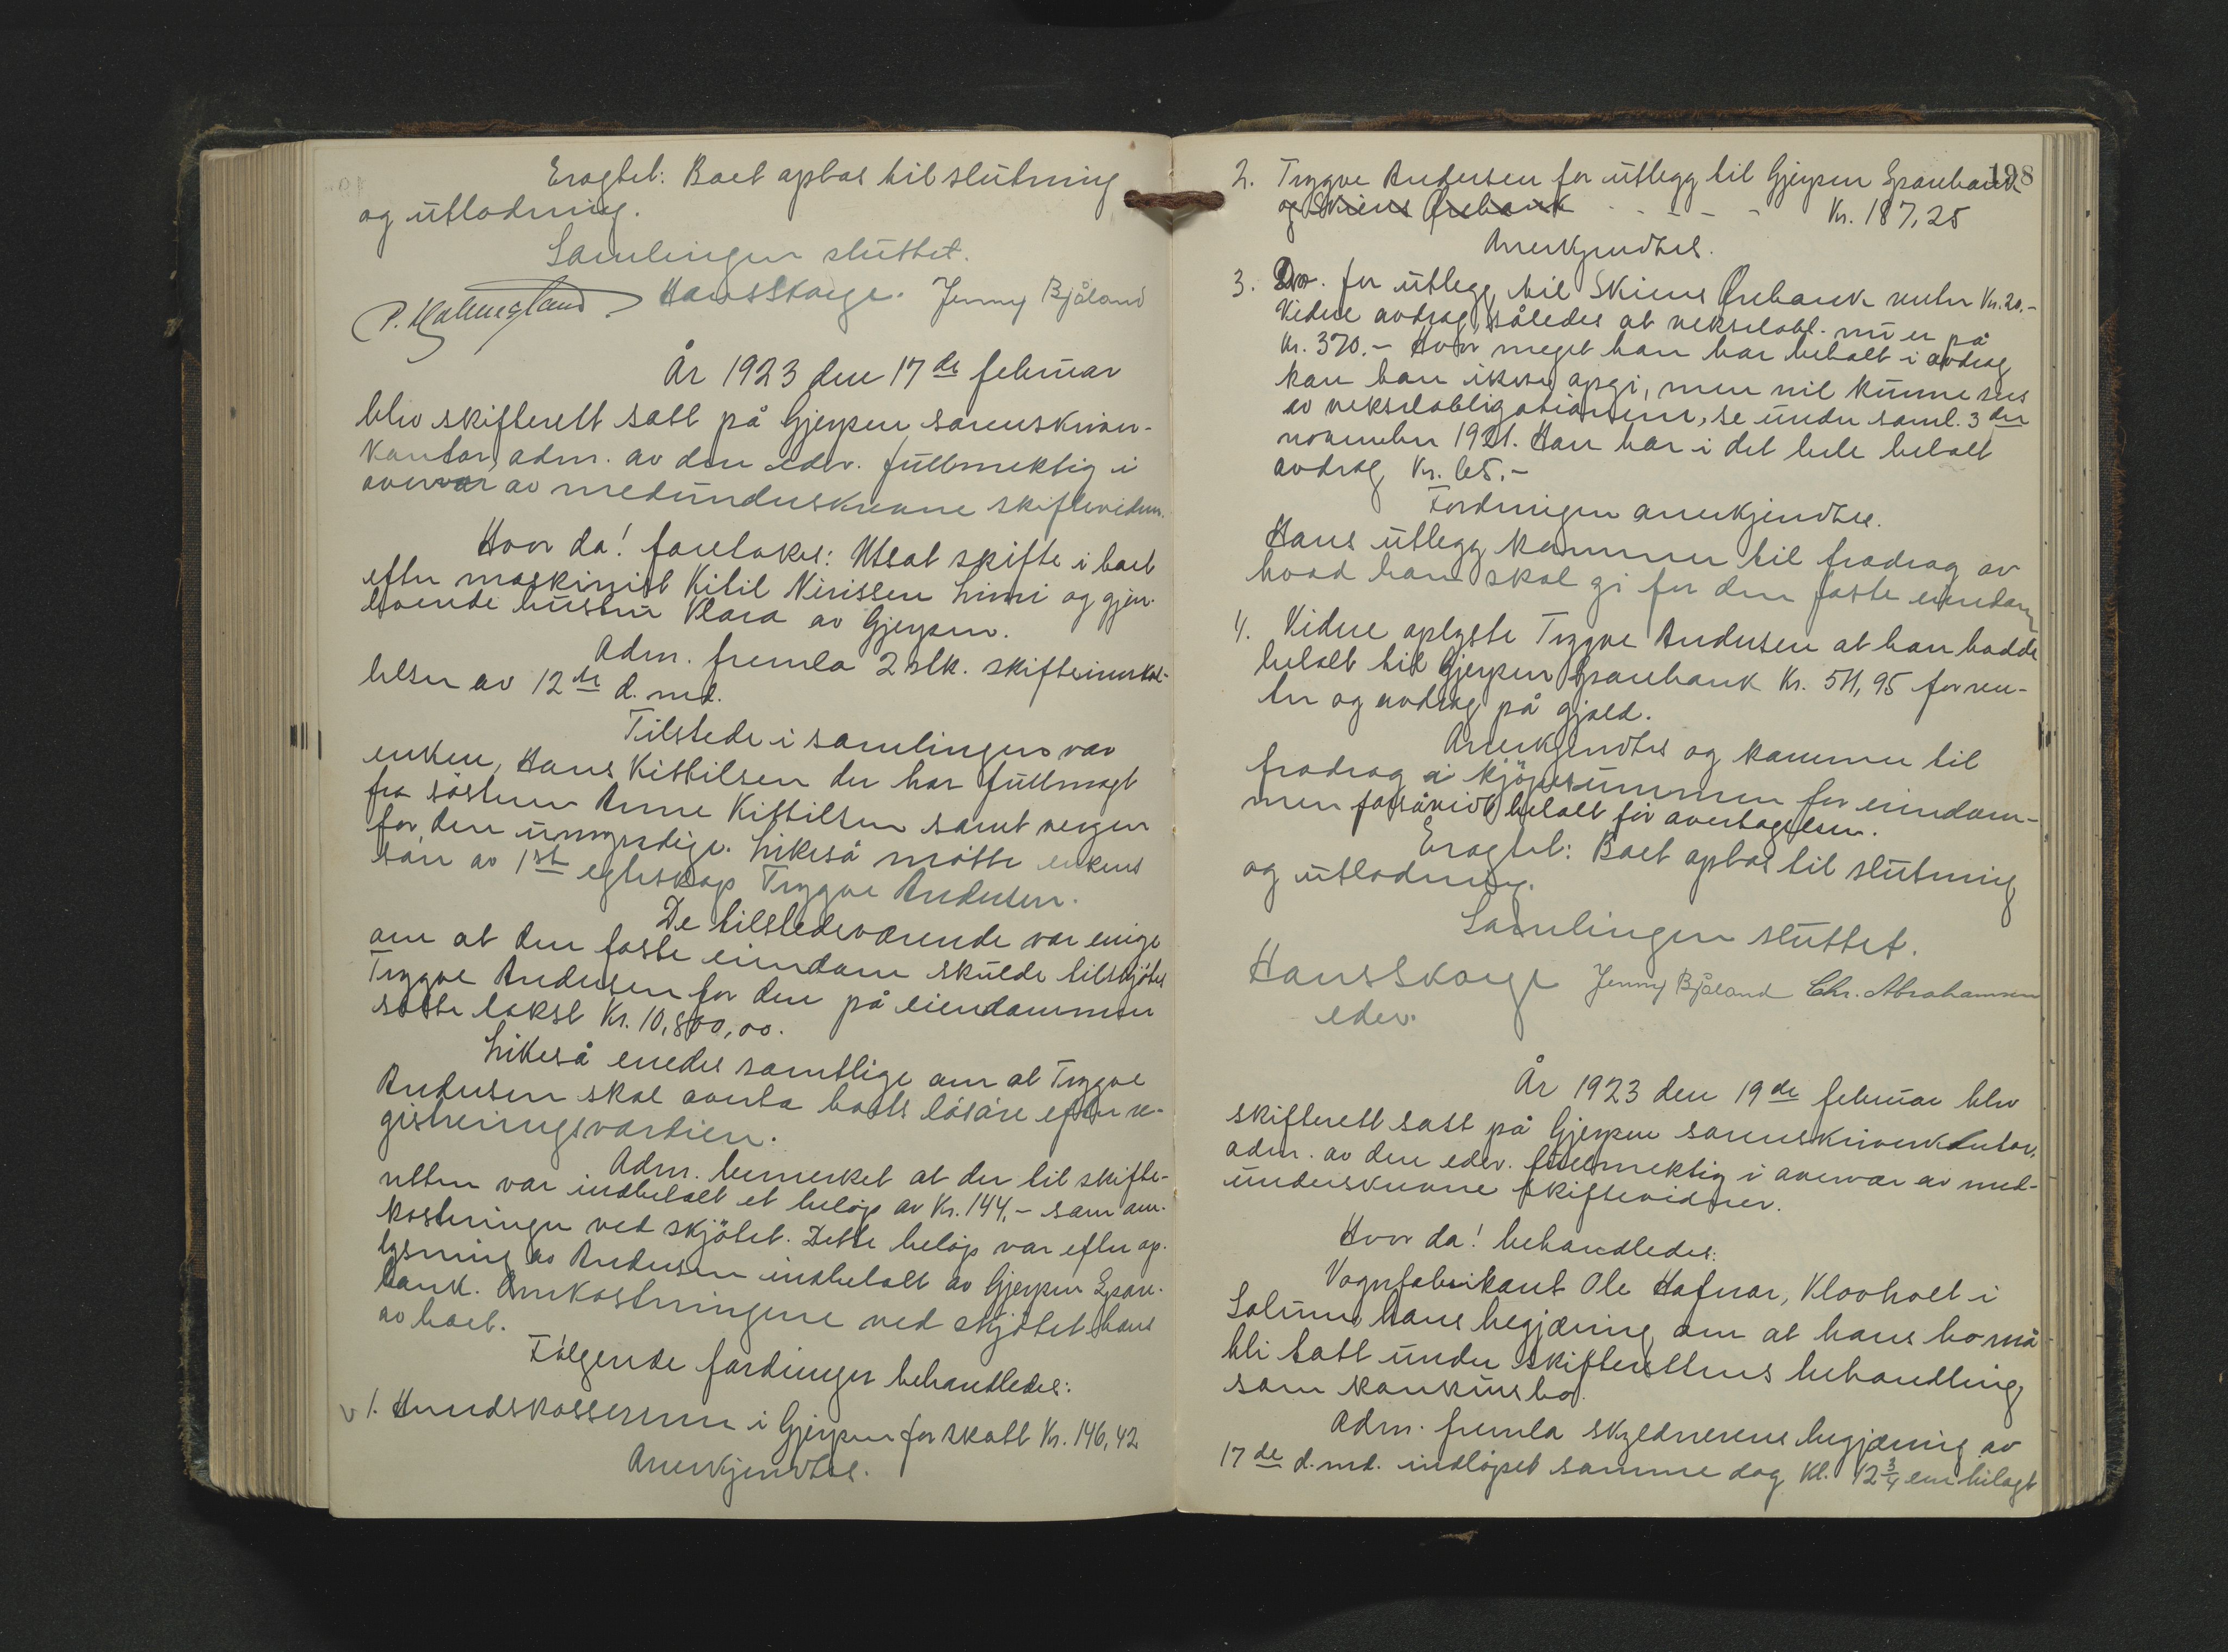 Eragtet: Boet optas til slutning
og utlodning.
Samlingen sluttet.
Hans Skarge. Jenny Bjåland
År 1923 den 17de februar
blev skifterett satt på Gjerpen sorenskriver-
kontor, adm. av den edsv. fullmektig i
overvær av medunderskrevne skiftevidner.
Hvor da! foretokes: Utsat skifte i boet
efter maskinist Kitil Nirissen Limi og gjen-
levende hustru Klara av Gjerpen.
Adm. fremla 2 stk. skifteinnkal-
lelser av 12te d. md.
Tilstede i samlingen var
enken, Hans Kittilsen der har fullmagt
fra søsteren Anne Kittilsen samt vergen
for den umyndige. Likeså møtte enkens
søn av 1ste egteskap Trygve Andersen.
De tilstedeværende var enige
om at den faste eiendom skulde tilskjøtes
Trygve Andersen for den på eiendommen
satte takst Kr. 10,800,00.
Likeså enedes samtlige om at Trygve
Andersen skal overta boets løsøre efter re-
gistreringsverdien.
Adm. bemerket at der til skifte-
retten var indbetalt et beløp av Kr. 144,- som om-
kostninger ved skjøtet. Dette beløp var efter op-
lysning av Andersen indbetalt av Gjerpen Spare-
bank. Omkostningene ved skjøtet bæres
av boet.
Følgende fordringer behandledes:
v 1. Herredskassereren i Gjerpen for skatt Kr. 146,42
Anerkjendtes.
198
2. Trygve Andersen for utlegg til Gjerpen Sparebank
og Skiens Ørebank - - - - - Kr. 187,25
Anerkjendtes.
3. Do. for utlegg til Skiens Ørebank renter Kr. 20.-
Videre avdrag, således at vekselobl. nu er på
Kr. 370.- Hvor meget han har betalt i avdrag
kan han ikke opgi, men vil kunne sees
av vekselobligationene, se under saml. 3dje
november 1921. Han har i det hele betalt
avdrag Kr. 65.-
Fordringen anerkjendtes.
Hans utlegg kommer til fradrag av
hvad han skal gi for den faste eiendom
4. Videre oplyste Trygve Andersen at han hadde
betalt til Gjerpen Sparebank Kr. 511,95 for ren-
ter og avdrag på gjæld.
Anerkjendtes og kommer til
fradrag i kjøpesummen for eiendom-
men forsåvidt betalt før overtagelsen.
Eragtet: Boet optas til slutning
og utlodning.
Samlingen sluttet.
Hans Skarge Jenny Bjåland Chr. Abrahamsen
edsv.
År 1923 den 19de februar blev
skifterett satt på Gjerpen sorenskriverkontor,
adm. av den edsv. fullmektig i overvær av med-
underskrevne skiftevidner.
Hvor da! behandledes:
Vognfabrikant Ole Hafnar, Klovholt i
Solum, hans begjæring om at hans bo må
bli tatt under skifterettens behandling
som konkursbo.
Adm. fremla skyldnerens begjæring av
17de d. md. indløpet samme dag Kl. 12 3/4 em bilagt